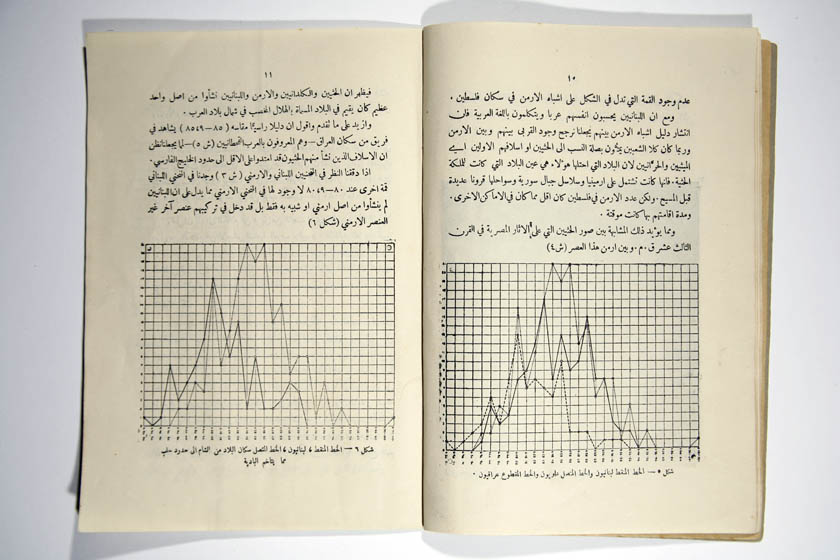 ١٠
عدم وجود القمة التي تدل في الشكل على اشباه الارمن في سكان فلسطين .
ومع ان اللبنانيين يحسبون انفسهم عربا ويتكلمون باللغة العربية فان
انتشار دليل اشباه الارمن بينهم يجعلنا نرجح وجود القربى بينهم وبين الارمن
وربما كان كلا الشعبين يمتّون بصلة النسب الى الحثيين او اسلافهم الاولين اي
الميثيين والحرّانيين لان البلاد التي احتلها هؤلاء هي عين البلاد التي كانت لمملكة
الحثية . فانها كانت تشتمل على ارمينيا وسلاسل جبال سورية وسواحلها قرونا عديدة
قبل المسيح . ولكن عدد الارمن في فلسطين كان اقل مما كان في الاماكن الاخرى .
ومدة اقامتهم بها كانت موقتة .
ومما يؤيد ذلك المشابهة بين صور الحثيين التي على الآثار المصرية في القرن
الثالث عشر ق . م . وبين ارمن هذا العصر (ش ٤)
شكل ٥ — الخط المنقط لبنانيون والخط المتصل علويون والخط المقطوع عراقيون .
١١
فيظهر ان الحثيين والكلدانيين والارمن واللبنانيين نشأوا من اصل واحد
عظيم كان يقيم في البلاد المسماة بالهلال المخصب في شمال بلاد العرب .
وازيد على ما تقدم واقول ان دليلا راسيًّا مقاسه (٨٥ — ٨٥٤٩) يشاهد في
فريق من سكان العراق — وهم المعروفون بالعرب القحطانيين (ش ٥) — مما يجعلنا نظن
ان الاسلاف الذين نشأ منهم الحثيون قد امتدوا على الاقل الى حدود الخليج الفارسي .
اذا دققنا النظر في المنحنيين اللبناني والارمني (ش ٣) وجدنا في المنحنى اللبناني
قمة اخرى عند ٨٠ — ٨٠٤٩ لا وجود لها في المنحنى الارمني مما يدل على ان اللبنانيين
لم ينشأوا من اصل ارمني او شبيه به فقط بل قد دخل في تركيبهم عنصر آخر غير
العنصر الارمني (شكل ٦)
شكل ٦ — الخط المنقط لبنانيون والخط المتصل سكان البلاد من الشام الى حدود حلب
مما يتاخم البادية